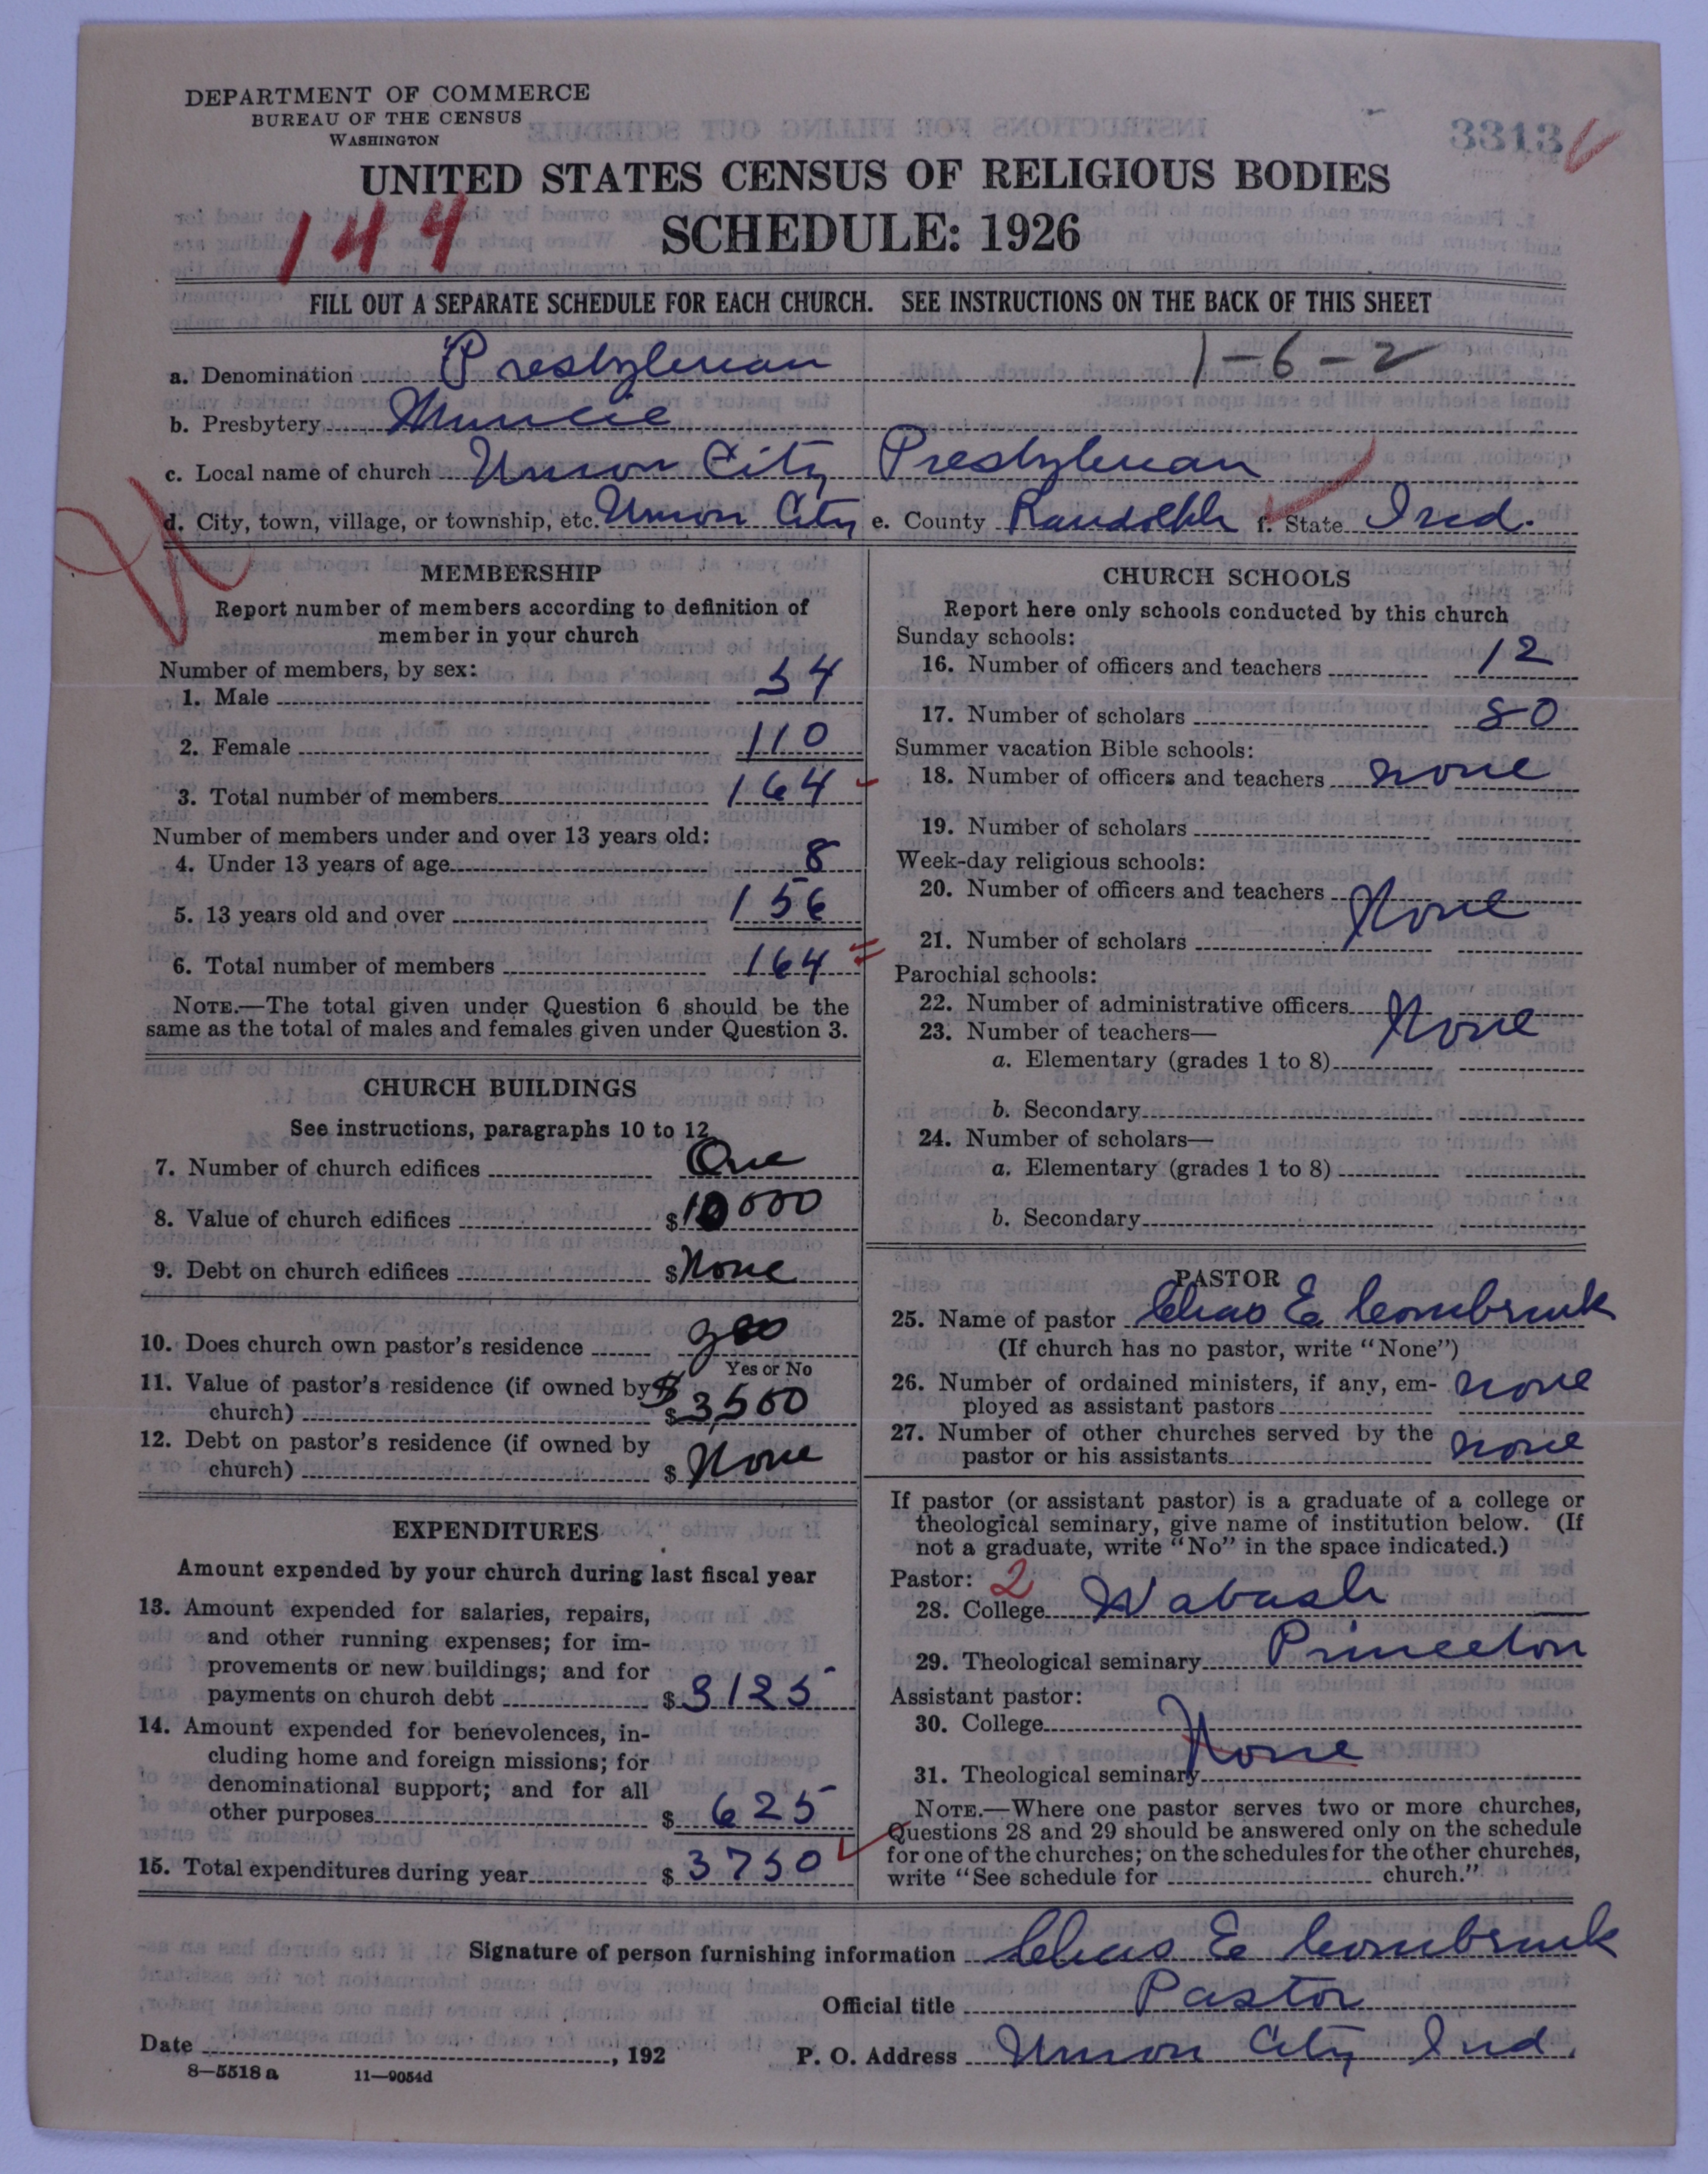 DEPARTMENT OF COMMERCE
BUREAU OF THE CENSUS
WASHINGTON
3313
UNITED STATES CENSUS OF RELIGIOUS BODIES
144
SCHEDULE: 1926
FILL OUT A SEPARATE SCHEDULE FOR EACH CHURCH. SEE INSTRUCTIONS ON THE BACK OF THIS SHEET
1-6-2
a. Denomination Presbyterian
b. Presbytery Muncie
c. Local name of church Union City Presbyterian
d. City, town, village, or township, etc. Union City e. County Randolph f. State Ind.
MEMBERSHIP
Report number of members according to definition of
member in your church
Number of members, by sex:
1. Male 54
2. Female 110
3. Total number of members 164
Number of members under and over 13 years old:
4. Under 13 years of age 8
5. 13 years old and over 156
6. Total number of members 164
NOTE.—The total given under Question 6 should be the
same as the total of males and females given under Question 3.
CHURCH BUILDINGS
See instructions, paragraphs 10 to 12
7. Number of church edifices One
8. Value of church edifices $10000
9. Debt on church edifices $None
10. Does church own pastor's residence yes
Yes or No
11. Value of pastor's residence (if owned by $
church) $3,500
12. Debt on pastor's residence (if owned by
church) $None
EXPENDITURES
Amount expended by your church during last fiscal year
13. Amount expended for salaries, repairs,
and other running expenses; for im-
provements or new buildings; and for
payments on church debt $3125
14. Amount expended for benevolences, in-
cluding home and foreign missions; for
denominational support; and for all
other purposes $625
15. Total expenditures during year $3750
CHURCH SCHOOLS
Report here only schools conducted by this church
Sunday schools:
16. Number of officers and teachers 12
17. Number of scholars 80
Summer vacation Bible schools:
18. Number of officers and teachers none
19. Number of scholars
Week-day religious schools:
20. Number of officers and teachers None
21. Number of scholars
Parochial schools:
22. Number of administrative officers None
23. Number of teachers—
a. Elementary (grades 1 to 8)
b. Secondary
24. Number of scholars—
a. Elementary (grades 1 to 8)
b. Secondary
PASTOR
25. Name of pastor Chas E
(If church has no pastor, write "None")
26. Number of ordained ministers, if any, em-
ployed as assistant pastors none
27. Number of other churches served by the
pastor or his assistants none
If pastor (or assistant pastor) is a graduate of a college or
theological seminary, give name of institution below. (If
not a graduate, write "No" in the space indicated.)
Pastor: 2
28. College Wabash
29. Theological seminary Princeton
Assistant pastor:
30. College None
31. Theological seminary
NOTE.—Where one pastor serves two or more churches,
Questions 28 and 29 should be answered only on the schedule
for one of the churches; on the schedules for the other churches,
write "See schedule for church."
Signature of person furnishing information Chas E
Official title Pastor
Date , 192
P. O. Address Union City Ind.
8—5518 a 11—9054d